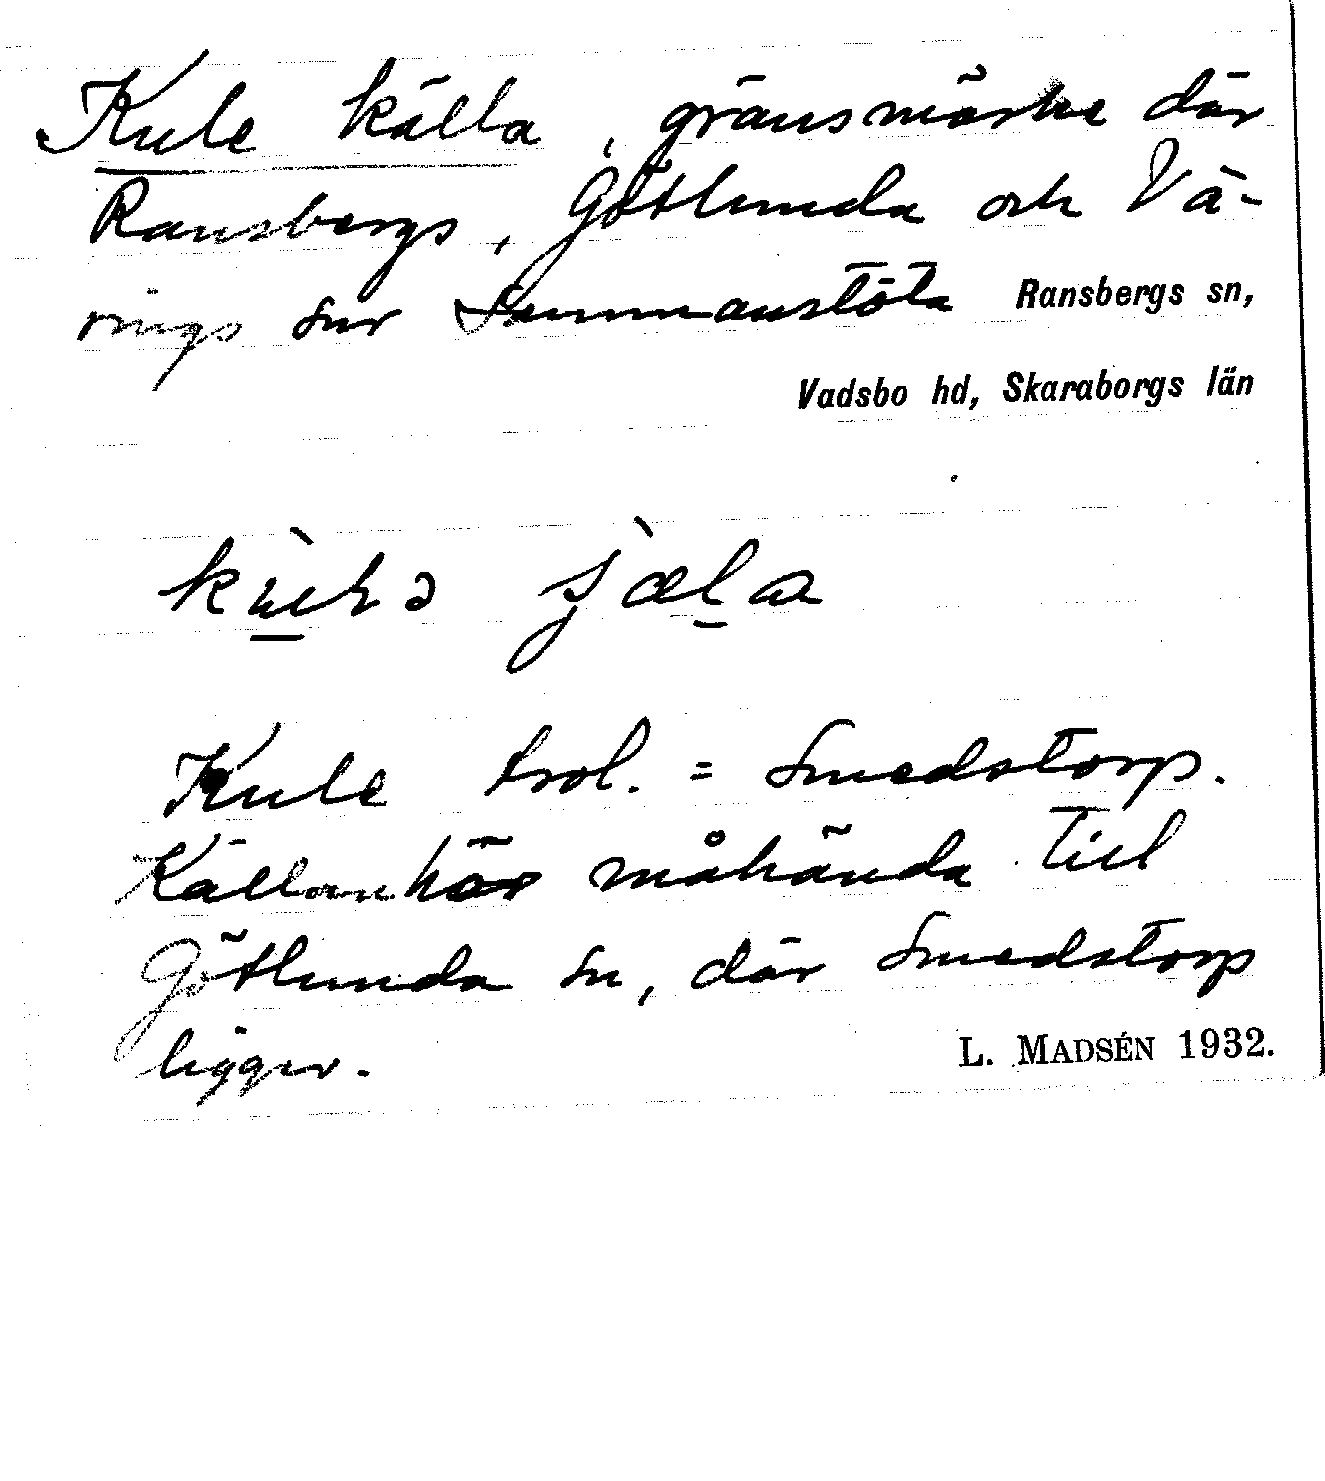 Kule källa, gränsmärke där
Ransbergs, Götlunda och Vä-
rings snr sammanstöta Ransbergs sn,
Vadsbo hd, Skaraborgs län
Kule trol. = Smedstorp.
Källan hör måhända till
Götlunda sn, där Smedstorp
ligger. L. MADSÉN 1932.